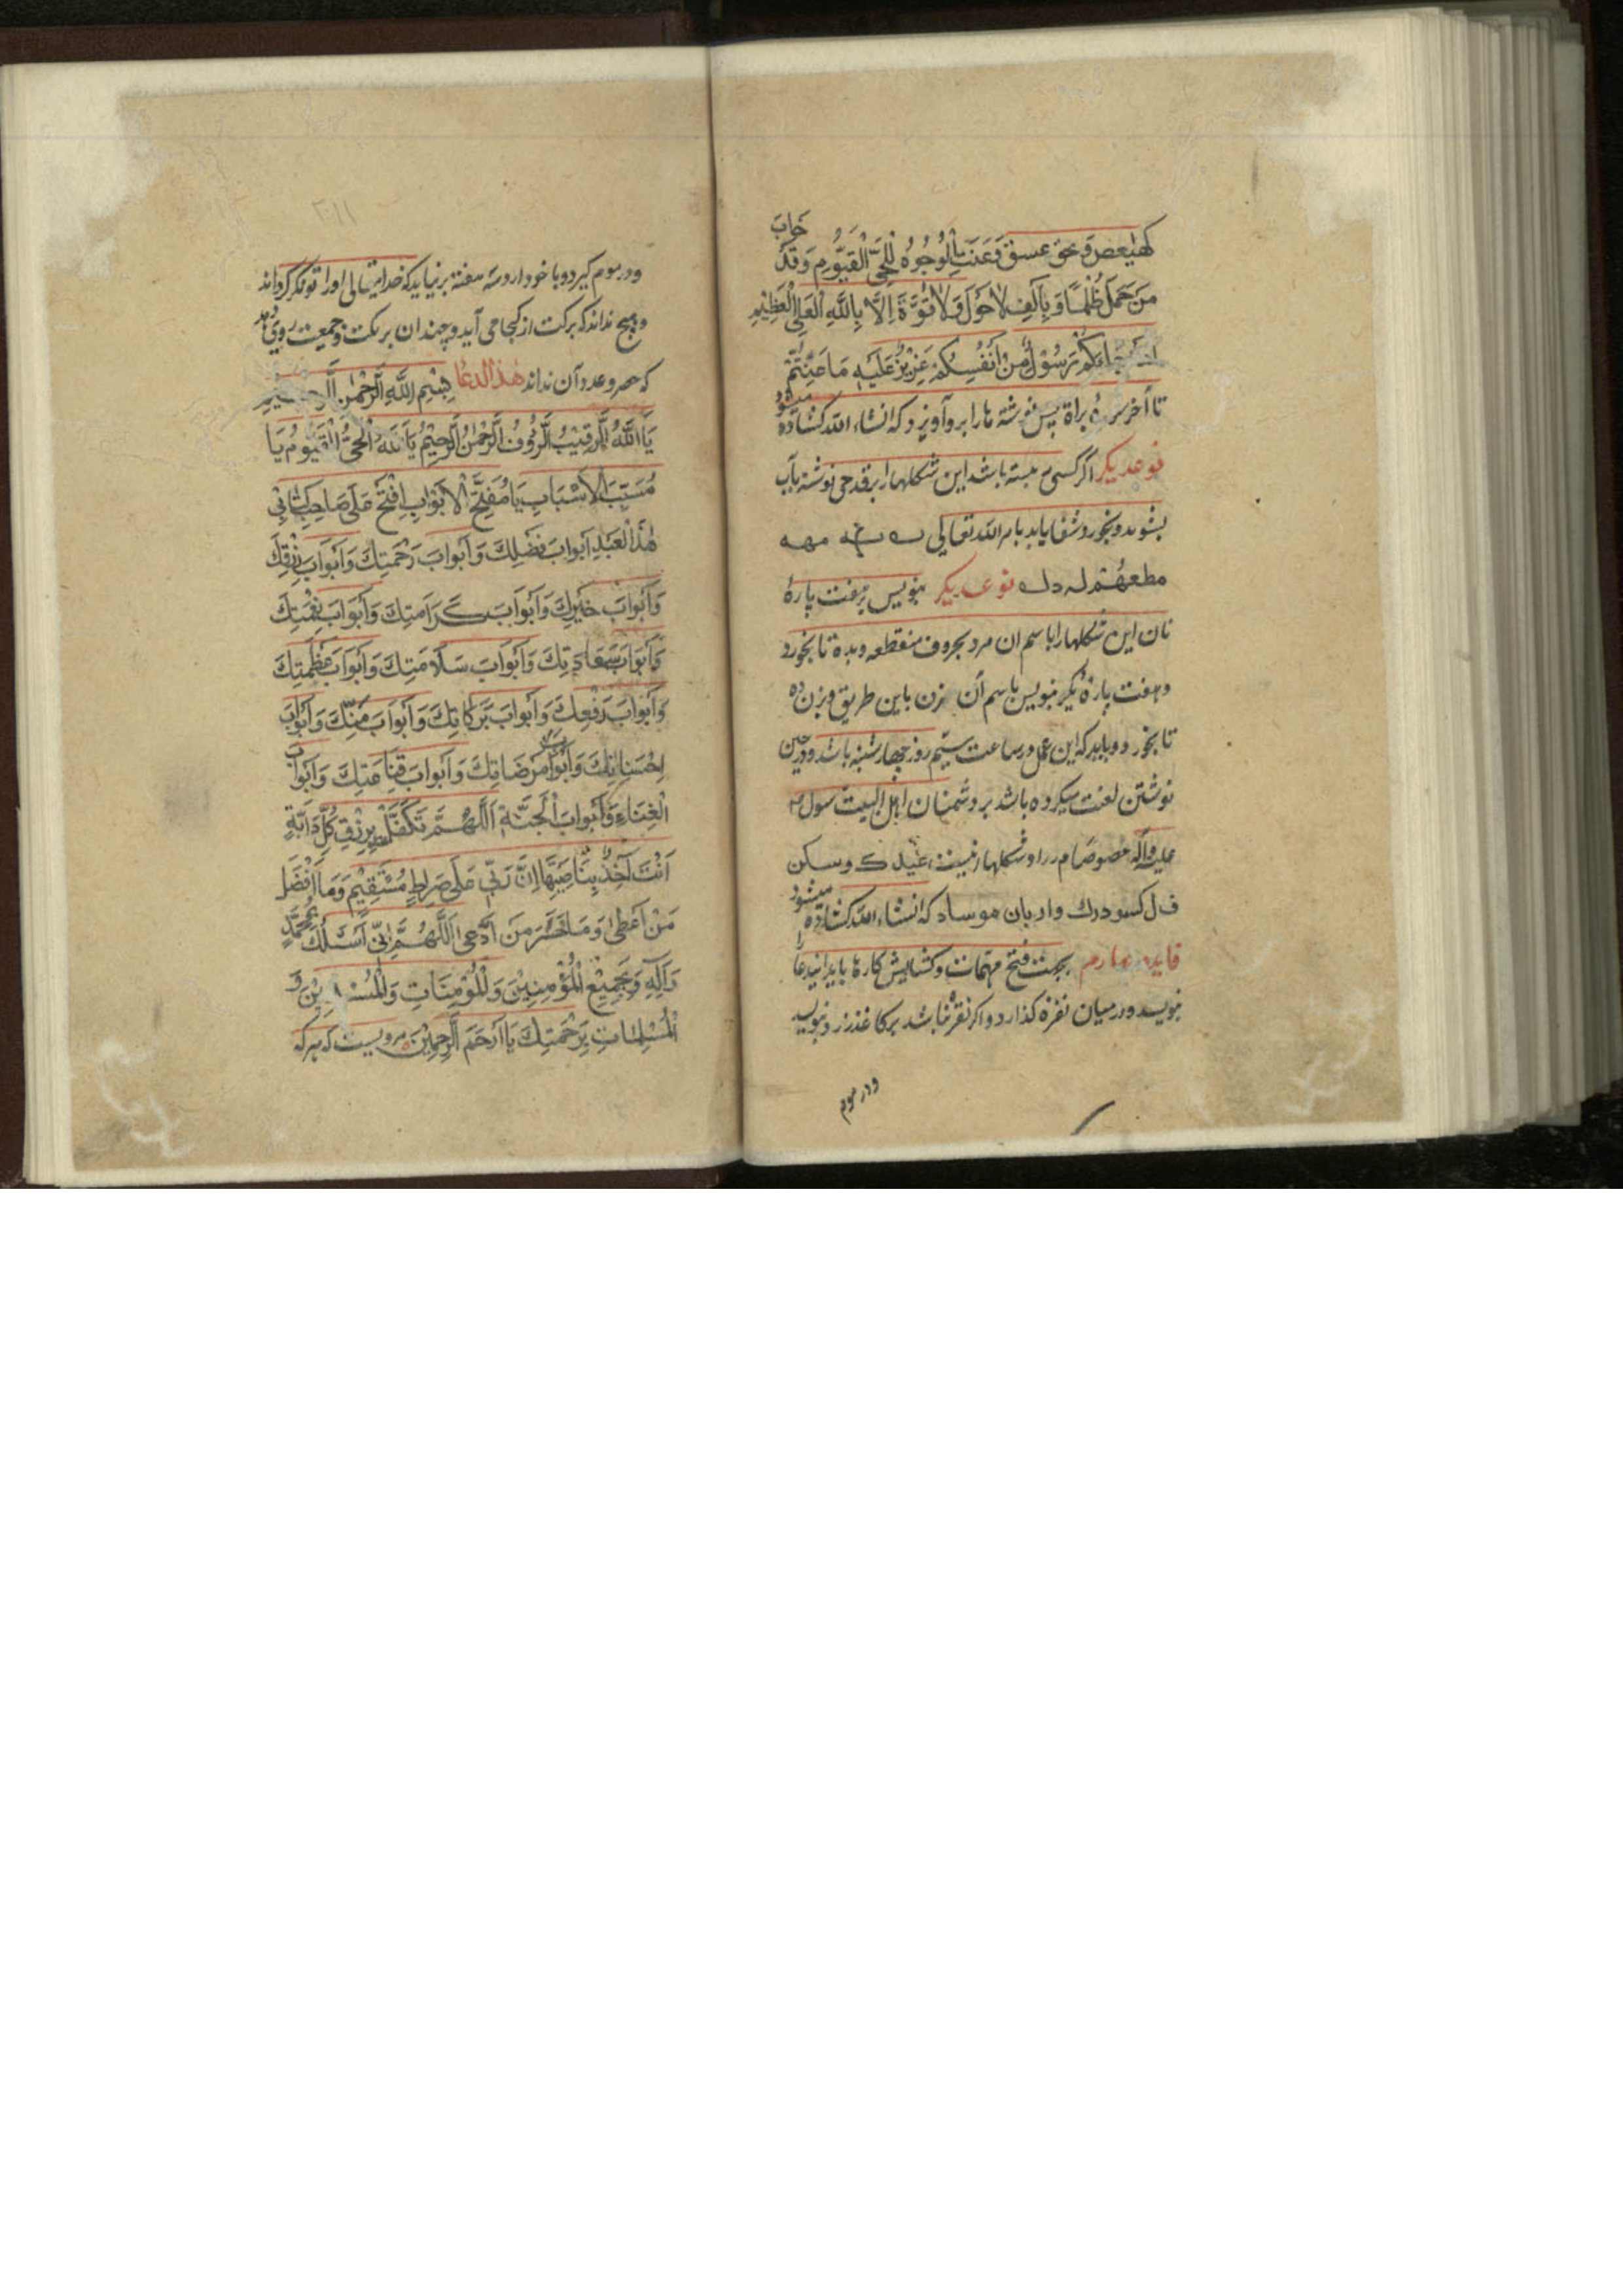 كهيعص و بحق عسق و عنت الوجوه للحي القيوم و قد خاب
من حمل ظلما و بالف لا حول و لا قوة الا بالله العلي العظيم
جاءكم رسول من انفسكم عزيز عليه ما عنتم
تا آخر سوره براة پس نوشته ها را برو آويزد كه انشاء الله كشاده ميشود
نوعديكر اكر كسى بسته باشد اين شكلها را بر قدحى نوشته بآب
بشويد و بخورد شفا يابد بامر الله تعالى
نوعديكر بنويس بر هفت پارهٔ
نان اين شكلها را باسم ان مرد بحروف منقطعه و بده تا بخورد
و هفت پارهٔ ديكر بنويس باسم آن زن باين طريق و بزن ده
تا بخورد و بايد كه اين عمل در ساعت سيّم روز چهارشنبه باشد و در حين
نوشتن لعنت ميكرده باشد بر دشمنان اهل البيت رسول
عليه و آله خصوصا و شكلها اينست
كه انشاء الله كشاده ميشود
فايده چهارم بجهت فتح مهمات و كشايش كارها بايد اين دعا را
بنويسد و در ميان نقره كذارد و اكر نقره نباشد بر كاغذ زرد بنويسد
و در موم
و در موم كيرد و با خود دارد سه هفته بر نيايد كه خدايتعالى او را توانكر كرداند
و هيچ نداند كه بركت از كجا مى آيد و چندان بركت و جمعيت روى دهد
كه حصر و عدد آن نداند هذا الدعا بسم الله الرحمن الرحيم
يا الله الرقيب الرؤف الرحمن الرحيم يا الله الحي القيوم يا
مسبب الاسباب يا مفتح الابواب افتح على صاحب كتابي
هذا العبد ابواب فضلك و ابواب رحمتك و ابواب رزقك
و ابواب خيرك و ابواب كرامتك و ابواب نعمتك
و ابواب سعادتك و ابواب سلامتك و ابواب عظمتك
و ابواب رفعتك و ابواب بركاتك و ابواب منك و ابواب
احسانك و ابواب مرضاتك و ابواب قناعتك و ابواب
الغناء و ابواب الجنة اللهم تكفل برزق كل دابة
انت آخذ بناصيتها ان ربي على صراط مستقيم و ما افضل
من اعطى و ما خسر من ادعى اللهم اني اسئلك بمحمد
و آله و بجميع المؤمنين و المؤمنات و المسلمين و
المسلمات برحمتك يا ارحم الراحمين مرويست كه هر كه